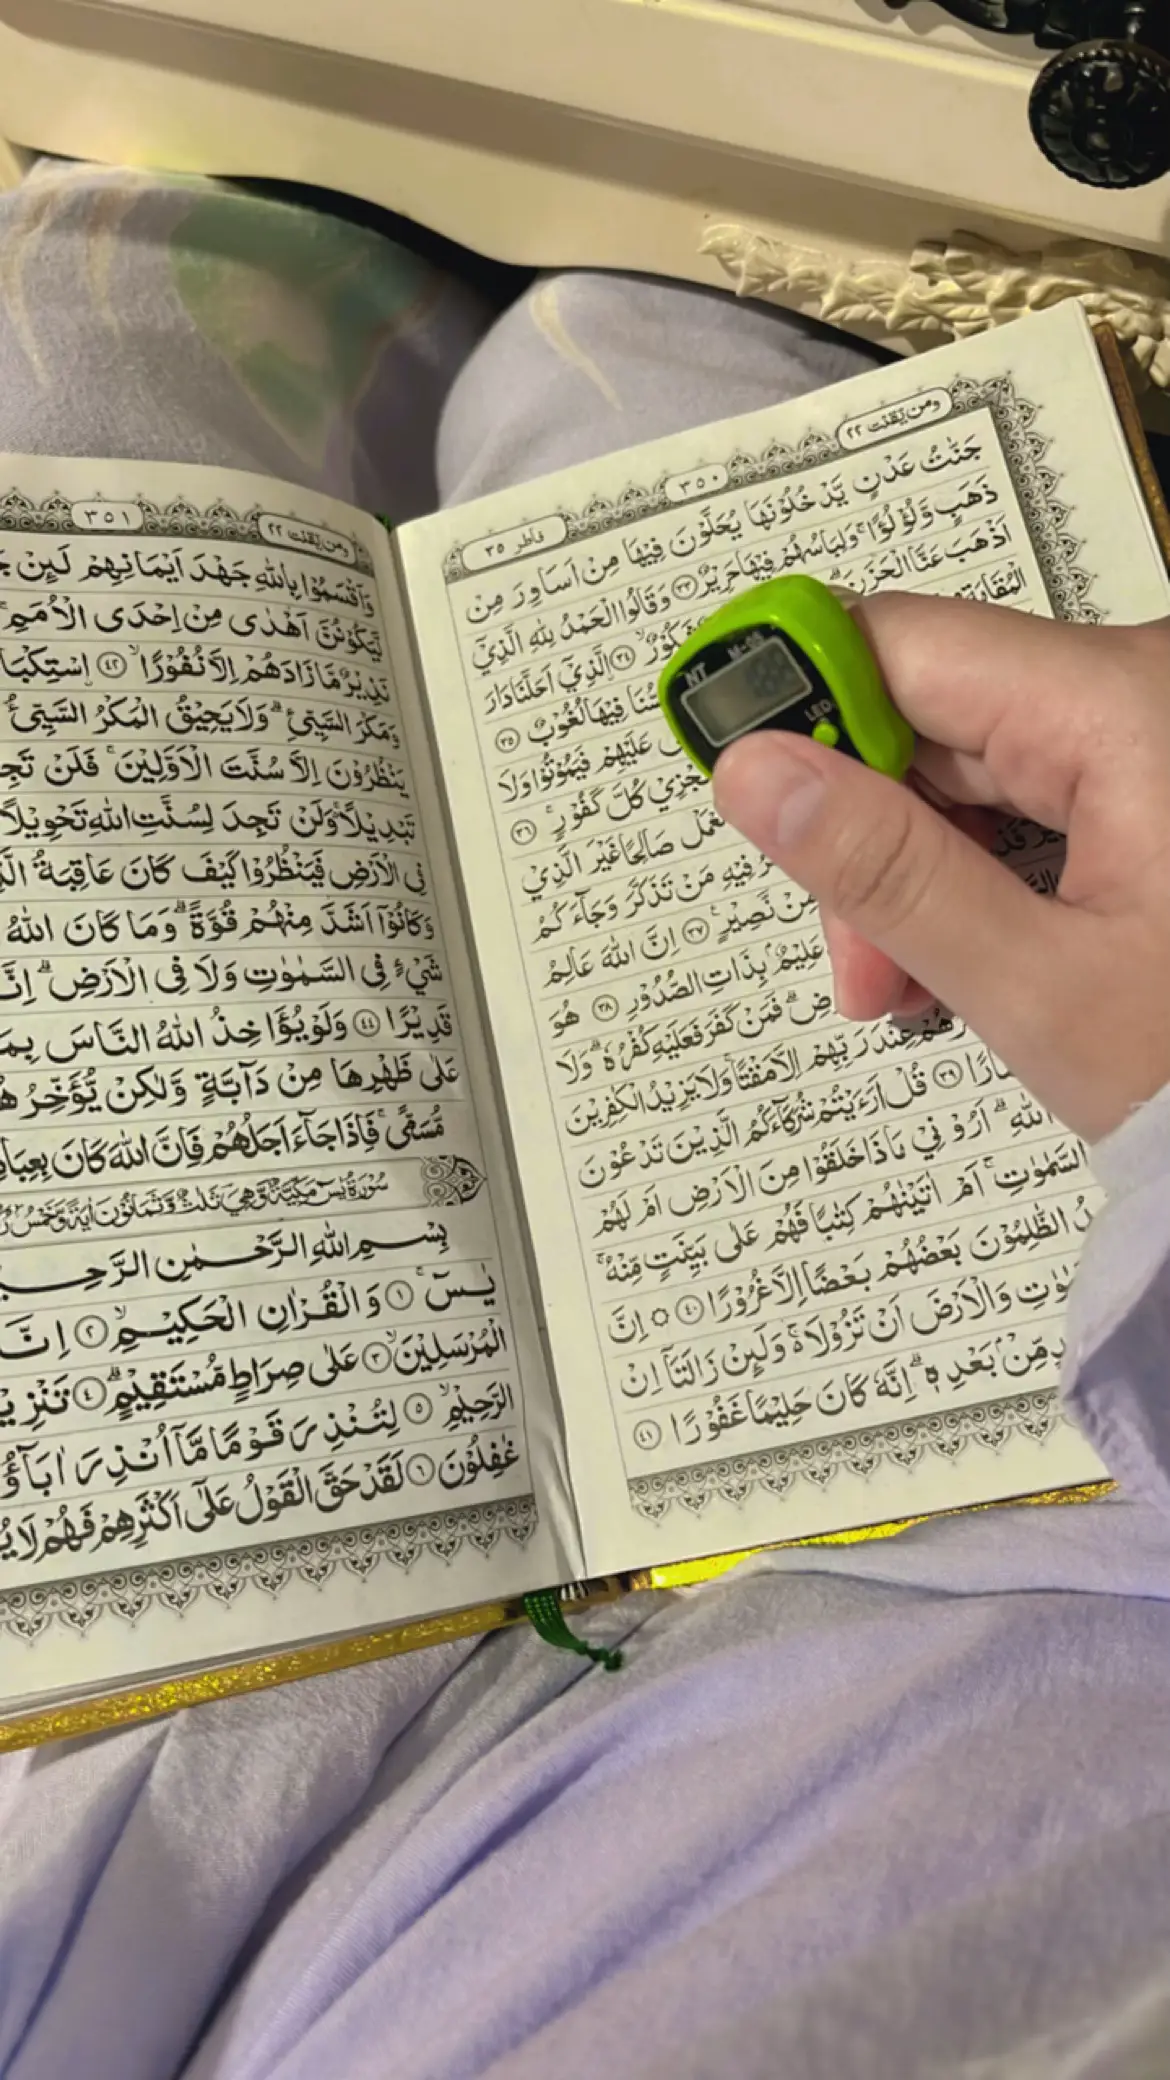 ومن يقنت ٢٢
٣٥٠
فاطر ٣٥
جَنّٰتُ عَدْنٍ يَّدْخُلُوْنَهَا يُحَلَّوْنَ فِيْهَا مِنْ اَسَاوِرَ مِنْ
ذَهَبٍ وَّلُؤْلُؤًا ۚ وَلِبَاسُهُمْ فِيْهَا حَرِيْرٌ ٣٣ وَقَالُوا الْحَمْدُ لِلّٰهِ الَّذِيْٓ
اَذْهَبَ عَنَّا الْحَزَنَ ۗ شَكُوْرٌ ۙ ٣٤ الَّذِيْٓ اَحَلَّنَا دَارَ
الْمُقَامَةِ فِيْهَا لُغُوْبٌ ٣٥
عَلَيْهِمْ فَيَمُوْتُوْا وَلَا
نَجْزِيْ كُلَّ كَفُوْرٍ ۚ ٣٦
نَعْمَلْ صَالِحًا غَيْرَ الَّذِيْ
فِيْهِ مَنْ تَذَكَّرَ وَجَآءَكُمُ
مِنْ نَّصِيْرٍ ۚ ٣٧ اِنَّ اللّٰهَ عَالِمُ
عَلِيْمٌۢ بِذَاتِ الصُّدُوْرِ ٣٨ هُوَ
فَمَنْ كَفَرَ فَعَلَيْهِ كُفْرُهٗ ۗ وَلَا
عِنْدَ رَبِّهِمْ اِلَّا مَقْتًا ۚ وَلَا يَزِيْدُ الْكٰفِرِيْنَ
٣٩ قُلْ اَرَءَيْتُمْ شُرَكَآءَكُمُ الَّذِيْنَ تَدْعُوْنَ
اللّٰهِ ۗ اَرُوْنِيْ مَاذَا خَلَقُوْا مِنَ الْاَرْضِ اَمْ لَهُمْ
السَّمٰوٰتِ ۚ اَمْ اٰتَيْنٰهُمْ كِتٰبًا فَهُمْ عَلٰى بَيِّنَتٍ مِّنْهُ ۚ
الظّٰلِمُوْنَ بَعْضُهُمْ بَعْضًا اِلَّا غُرُوْرًا ٤٠ ۞ اِنَّ
وَالْاَرْضَ اَنْ تَزُوْلَا ۚ وَلَئِنْ زَالَتَآ اِنْ
مِّنْۢ بَعْدِهٖ ۗ اِنَّهٗ كَانَ حَلِيْمًا غَفُوْرًا ٤١
NT
LED
ومن يقنت ٢٢
٣٥١
وَاَقْسَمُوْا بِاللّٰهِ جَهْدَ اَيْمَانِهِمْ لَئِنْ
لَّيَكُوْنُنَّ اَهْدٰى مِنْ اِحْدَى الْاُمَمِ ۚ
نَذِيْرٌ مَّا زَادَهُمْ اِلَّا نُفُوْرًا ۙ ٤٢
وَمَكْرَ السَّيِّئِ ۗ وَلَا يَحِيْقُ الْمَكْرُ السَّيِّئُ
يَنْظُرُوْنَ اِلَّا سُنَّتَ الْاَوَّلِيْنَ ۚ فَلَنْ
تَبْدِيْلًا ۚ وَلَنْ تَجِدَ لِسُنَّتِ اللّٰهِ تَحْوِيْلًا
فِى الْاَرْضِ فَيَنْظُرُوْا كَيْفَ كَانَ عَاقِبَةُ
وَكَانُوْٓا اَشَدَّ مِنْهُمْ قُوَّةً ۗ وَمَا كَانَ اللّٰهُ
شَيْءٍ فِى السَّمٰوٰتِ وَلَا فِى الْاَرْضِ ۗ
قَدِيْرًا ٤٤ وَلَوْ يُؤَاخِذُ اللّٰهُ النَّاسَ
عَلٰى ظَهْرِهَا مِنْ دَآبَّةٍ وَّلٰكِنْ يُّؤَخِّرُ
مُّسَمًّى ۚ فَاِذَا جَآءَ اَجَلُهُمْ فَاِنَّ اللّٰهَ كَانَ
سُوْرَةُ يٰسٓ مَكِّيَّةٌ وَّهِيَ ثَلٰثٌ وَّثَمَانُوْنَ اٰيَةً وَّخَمْسُ
بِسْمِ اللّٰهِ الرَّحْمٰنِ
يٰسٓ ۚ ١ وَالْقُرْاٰنِ الْحَكِيْمِ ۙ ٢
الْمُرْسَلِيْنَ ۙ ٣ عَلٰى صِرَاطٍ مُّسْتَقِيْمٍ ۗ ٤
الرَّحِيْمِ ۙ ٥ لِتُنْذِرَ قَوْمًا مَّآ اُنْذِرَ
غٰفِلُوْنَ ٦ لَقَدْ حَقَّ الْقَوْلُ عَلٰٓى اَكْثَرِهِمْ فَهُمْ لَا